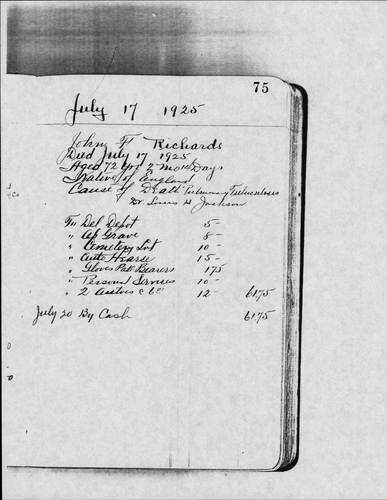 75
July 17 1925
John F Richards
Died July 17 1925
Aged 72 yrs 2 Mo 14 Days
Native of England
Cause of Death Pulmonary Tuberculosis
Dr. Louis H Jackson
To Del Depot 5-
" Op Grave 8-
" Cemetery Lot 10-
" Auto Hearse 15-
" Gloves Pall Bearers 175
" Personal Services 10-
" 2 Autos 12- 6175
July 20 By Cash 6175